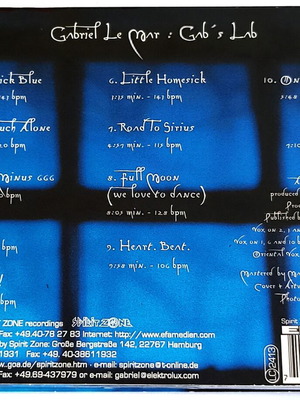 Gabriel Le Mar : Gab's Lab
ick Blue
143 bpm
uch Alone
0 bpm
Minus 666
bpm
6. Little Homesick
7:35 min. - 143 bpm
7. Road To Sirius
4:57 min. - 115 bpm
8. Full Moon
(we love yo dance)
8:03 min. - 128 bpm
9. Heart. Beat.
7:58 min. - 106 bpm
10.
A
produced
Pro
Published b
Vox on 2,
Vox on 1, 6 and 10 b
Oriental Vox
Mastered by M
Cover + Artw
Phot
T ZONE recordings SPIRIT ZONE
Fax +49.40-78 27 83 Internet: http://www.efamedien.com
by Spirit Zone: Große Bergstraße 142, 22767 Hamburg
1931 Fax +49. 40-38611932
w.goa.de/spiritzone.htm - e-mail: spiritzone@t-online.de
Fax +49.69-437979 or e-mail: gabriel@elektrolux.com
LC 2413